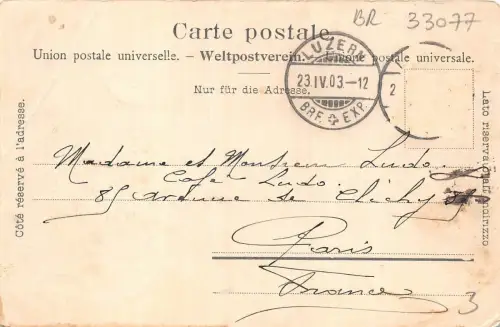 BR 33077
Carte postale.
Union postale universelle. – Weltpostverein. – Unione postale universale.
LUZERN
23.IV.03–12
BRF. EXP.
2
Nur für die Adresse.
Côté réservé à l'adresse.
Lato riservato all'indirizzo
Madame et Monsieur Ludo.
Cafe Ludo
85 avenue de Clichy
Paris
France
3